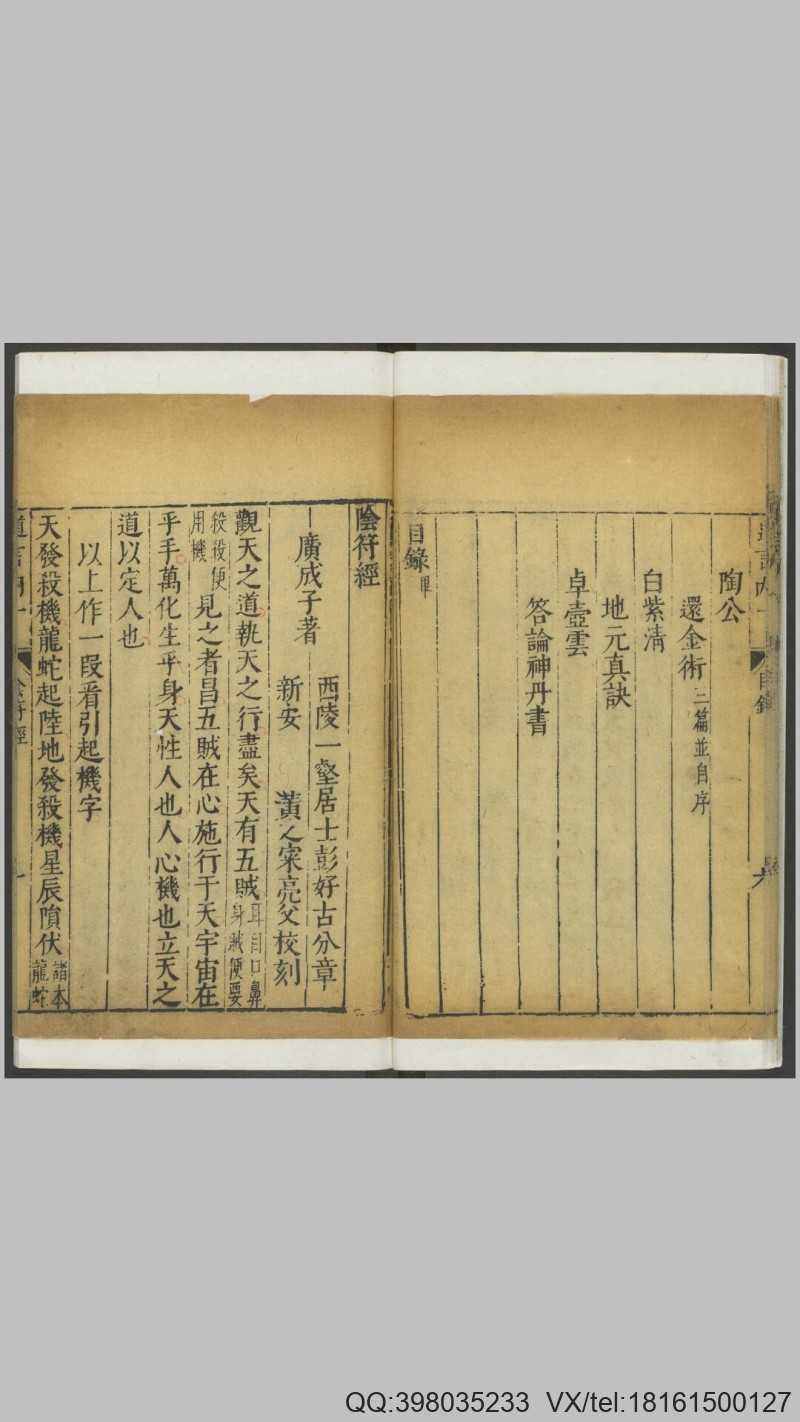 陶公
還金術三篇並自序
白紫清
地元真訣
卓壺雲
答論神丹書
目錄畢
陰符經
廣成子著
西陵一壑居士彭好古分章
新安 黃之寀亮父校刻
觀天之道執天之行盡矣天有五賊耳目口鼻身賊便要
役役便用機見之者昌五賊在心施行于天宇宙在
乎手萬化生乎身天性人也人心機也立天之
道以定人也
以上作一段看引起機字
天發殺機龍蛇起陸地發殺機星辰隕伏諸本龍蛇
QQ:398035233 VX/tel:18161500127